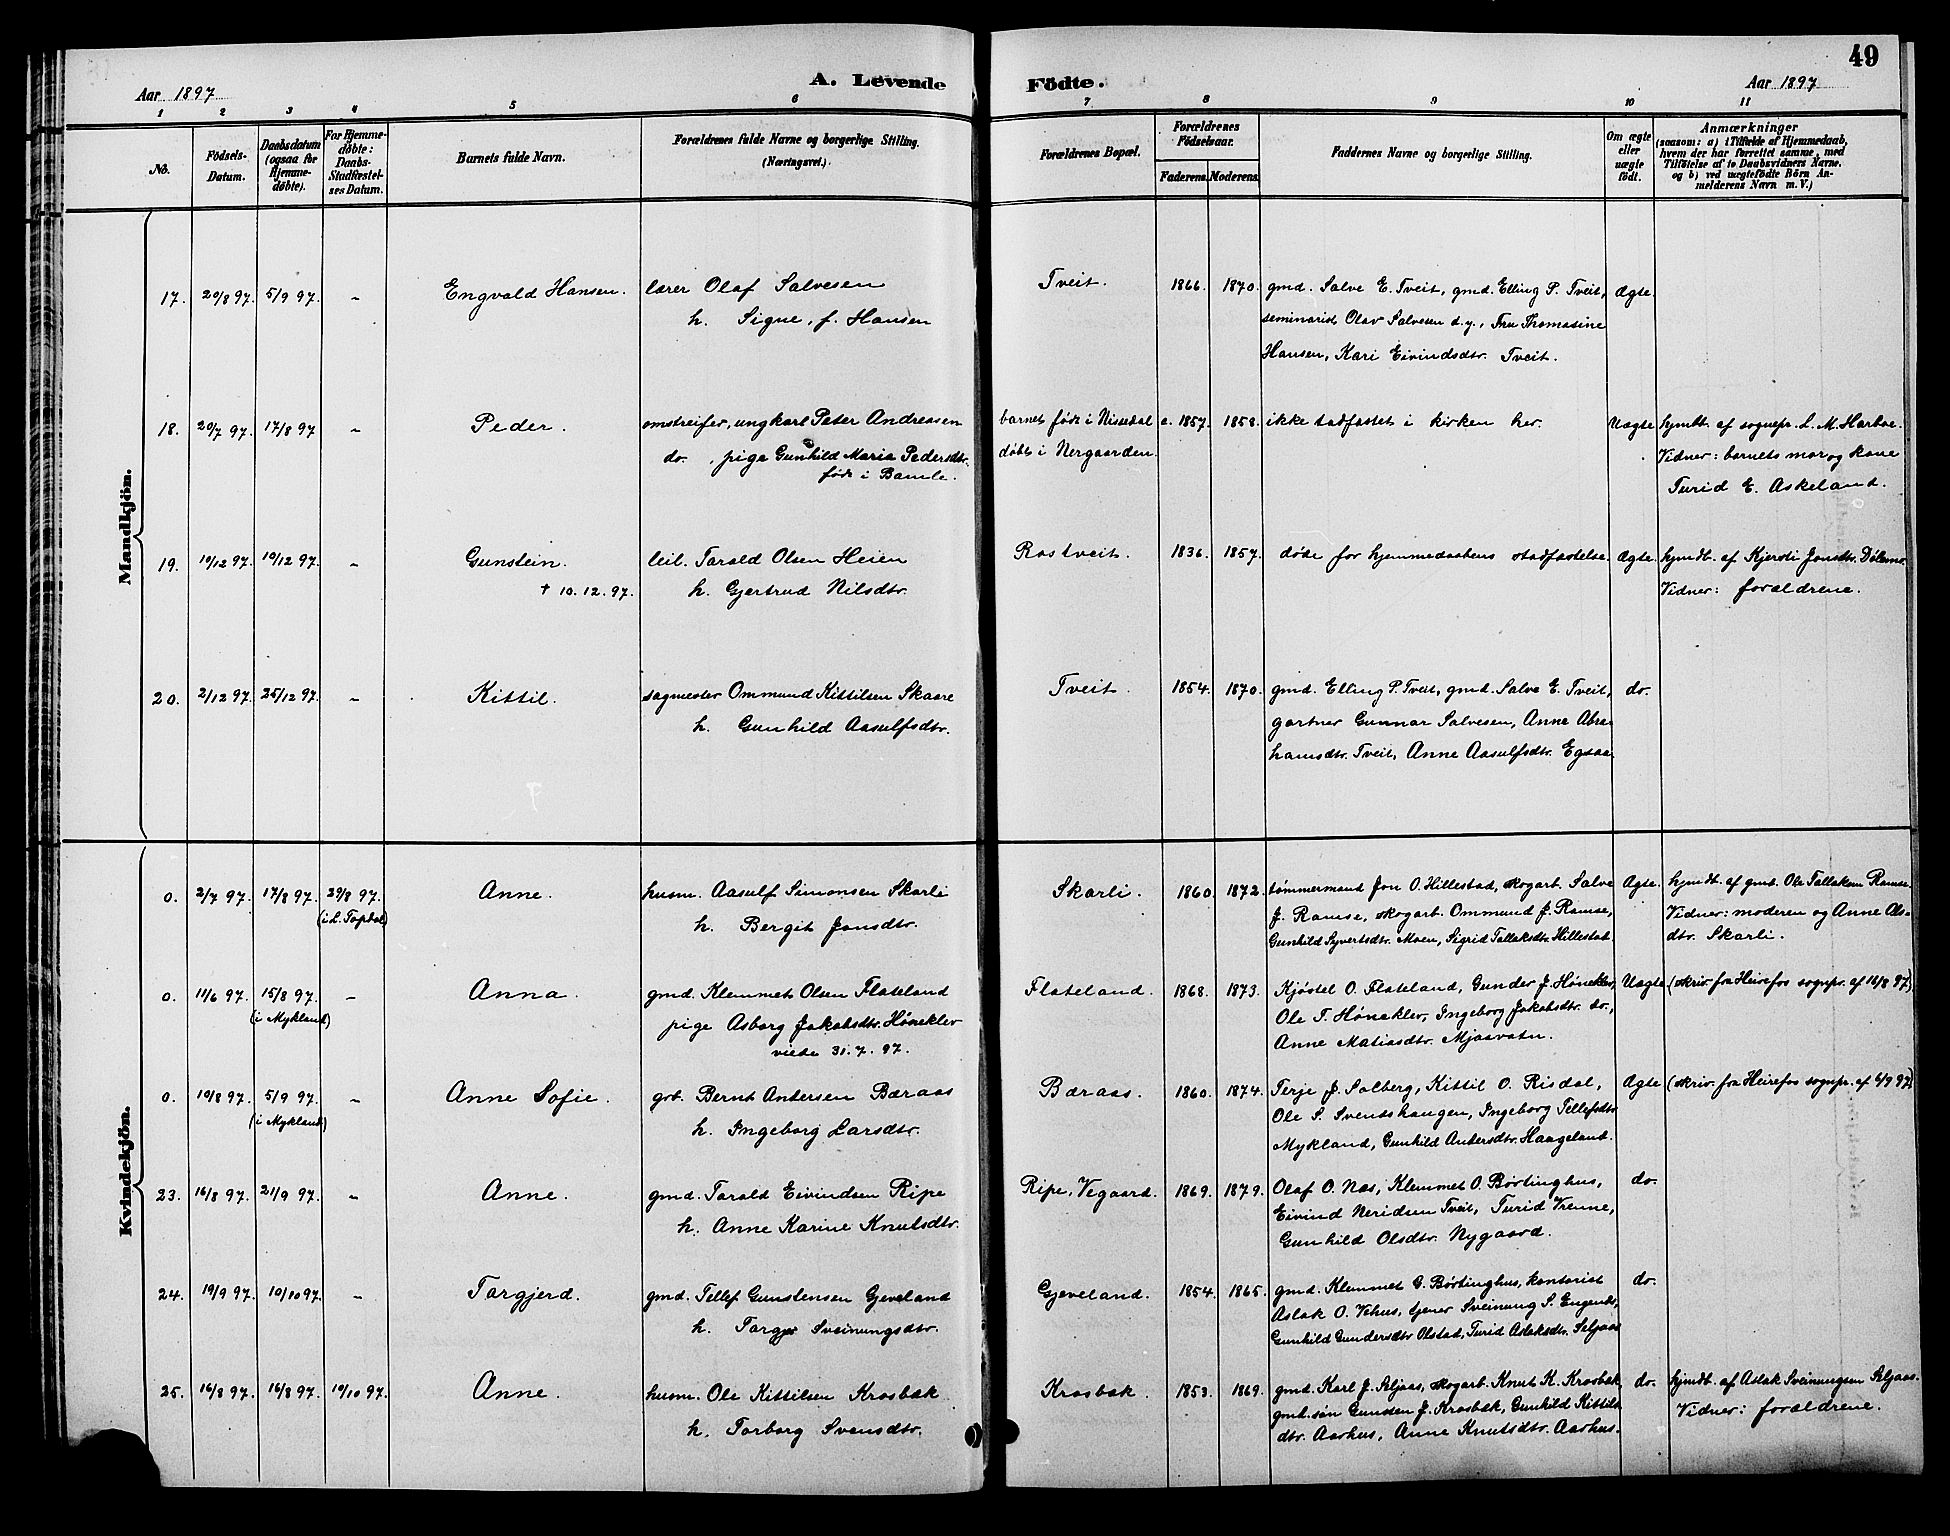 49
A. Levende Födte.
Aar 1897
Aar 1897
1 2 3 4 5 6 7 8 9 10 11
No.
Födsels-
Datum.
Daabsdatum
(ogsaa for
Hjemme-
döbte).
For Hjemme-
döbte:
Daabs-
Stadfæstel-
ses Datum.
Barnets fulde Navn.
Forældrenes fulde Navne og borgerlige Stilling.
(Næringsvei.)
Forældrenes Bopæl.
Forældrenes
Födselsaar.
Faderens. Moderens.
Faddernes Navne og borgerlige Stilling.
Om ægte
eller
uægte
födt.
Anmærkninger
(saasom: a) i Tilfælde af Hjemmedaab,
hvem der har forrettet samme, med
Tilføielse af to Daabsvidners Navne.
og b) ved uægtefödte Börn An-
melderens Navn m. V.)
Mandkjön.
17. 20/8 97. 5/9 97. - Engvald Hansen. lærer Olaf Salvesen Tveit. 1866. 1870. gmd. Salve E. Tveit, gmd. Elling P. Tveit, Ægte.
h. Signe, f. Hansen seminarist Olav Salvesen d.y., Fru Thomasine
Hansen, Kari Eivindsdtr. Tveit.
18. 20/7 97. 17/8 97 - Peder. omstreifer, ungkarl Peter Andreasen barnet født i Nissedal c. 1857. 1858. ikke stadfæstet i kirken her. Uægte hjmdt. af sognepr. L. M. Harboe.
do. , pige Gunhild Maria Pedersdtr. døbt i Nergaarden. Vidner: barnets mor og kone
født i Bamle. Turid E. Askeland.
19. 10/12 97. 10/12 97. - Gunstein. leil. Tarald Olsen Heien Rostveit. 1836. 1857. døde før hjemmedaabens stadfæstelse. Ægte. hjmdt. af Kjersti Jonsdtr. Dølemo.
+ 10.12.97. h. Gjertrud Nilsdtr. Vidner: forældrene.
20. 2/12 97. 25/12 97. - Kittil. sagmester Ommund Kittilsen Skaare Tveit. 1854. 1870. gmd. Elling P. Tveit, gmd. Salve E. Tveit, do.
h. Gunhild Aasulfsdtr. gartner Gunnar Salvesen, Anne Abra-
hamsdtr. Tveit, Anne Aasulfsdtr. Egsaa.
Kvindekjön.
0. 2/7 97. 17/8 97. 29/8 97. Anne. husm. Aasulf Simonsen Skarli Skarli. 1860. 1872. tømmermand Jon O. Hillestad, skogarb. Salve Ægte. hjmdt. af gmd. Ole Tallaksen Ramse.
(i L. Topdal) h. Bergit Jonsdtr. J. Ramse, skogarb. Ommund J. Ramse, Vidner: moderen og Anne Ols-
Gunhild Syvertsdtr. Moen, Sigrid Tallaksdtr. Hillestad. dtr. Skarli.
0. 11/6 97. 15/8 97. - Anna. gmd. Klemmet Olsen Flateland Flateland. 1868. 1873. Kjøstel O. Flateland, Gunder J. Hønekler, Uægte (skriv. fra Heirefos sognepr. af 16/8 97)
(i Mykland) pige Asborg Jakobsdtr. Hønekler Ole T. Hønekler, Ingeborg Jakobsdtr. do.,
viede 31.7.97. Anne Matiasdtr. Mjaavatn.
0. 10/8 97. 5/9 97. - Anne Sofie. gbr. Bernt Andersen Bæraas Bæraas. 1860. 1874. Terje J. Solberg, Kittil O. Risdal, Ægte (skriv. fra Heirefos sognepr. af 6/9 97)
(i Mykland) h. Ingeborg Larsdtr. Ole S. Svendshaugen, Ingeborg Tellefsdtr
Mykland, Gunhild Andersdtr. Haageland.
23. 16/8 97. 21/9 97. - Anne. gmd. Tarald Eivindsen Ripe Ripe, Vegaard. 1869. 1879. Olaf O. Næs, Klemmet O. Børtinghus, do.
h. Anne Karine Knutsdtr. Eivind Neridsen Tveit, Turid Vrenne,
Gunhild Olsdtr. Nygaard.
24. 19/9 97. 10/10 97. - Torgjerd. gmd. Tellef Gunstensen Gjeveland Gjeveland. 1854. 1865. gmd. Klemmet G. Børtinghus, kontorist do.
h. Torgjer Sveinungsdtr. Aslak O. Vehus, tjener Sveinung S. Engenes,
Gunhild Gundersdtr Olstad, Turid Aslaksdtr. Seljaas
25. 16/8 97. 16/8 97. 10/10 97. Anne. husm. Ole Kittilsen Krosbæk Krosbæk. 1853. 1869. gmd. Karl J. Seljaas, skogarb. Knut K. Krosbæk, do. hjmdt. af Aslak Sveinungsen Seljaas.
h. Torborg Svensdtr. gmd. søn Gunsten J. Krosbæk, Gunhild Kittils- Vidner: forældrene.
dtr. Aarhus, Anne Knutsdtr. Aarhus.